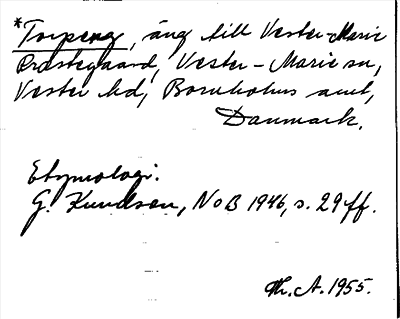 *Torpeng, äng till Vester-Marie
Præstegaard, Vester-Marie sn,
Vester hd, Bornholms amt,
Danmark.
Etymologi:
G. Knudsen, NoB 1946, s. 29 ff.
Th. A. 1955.